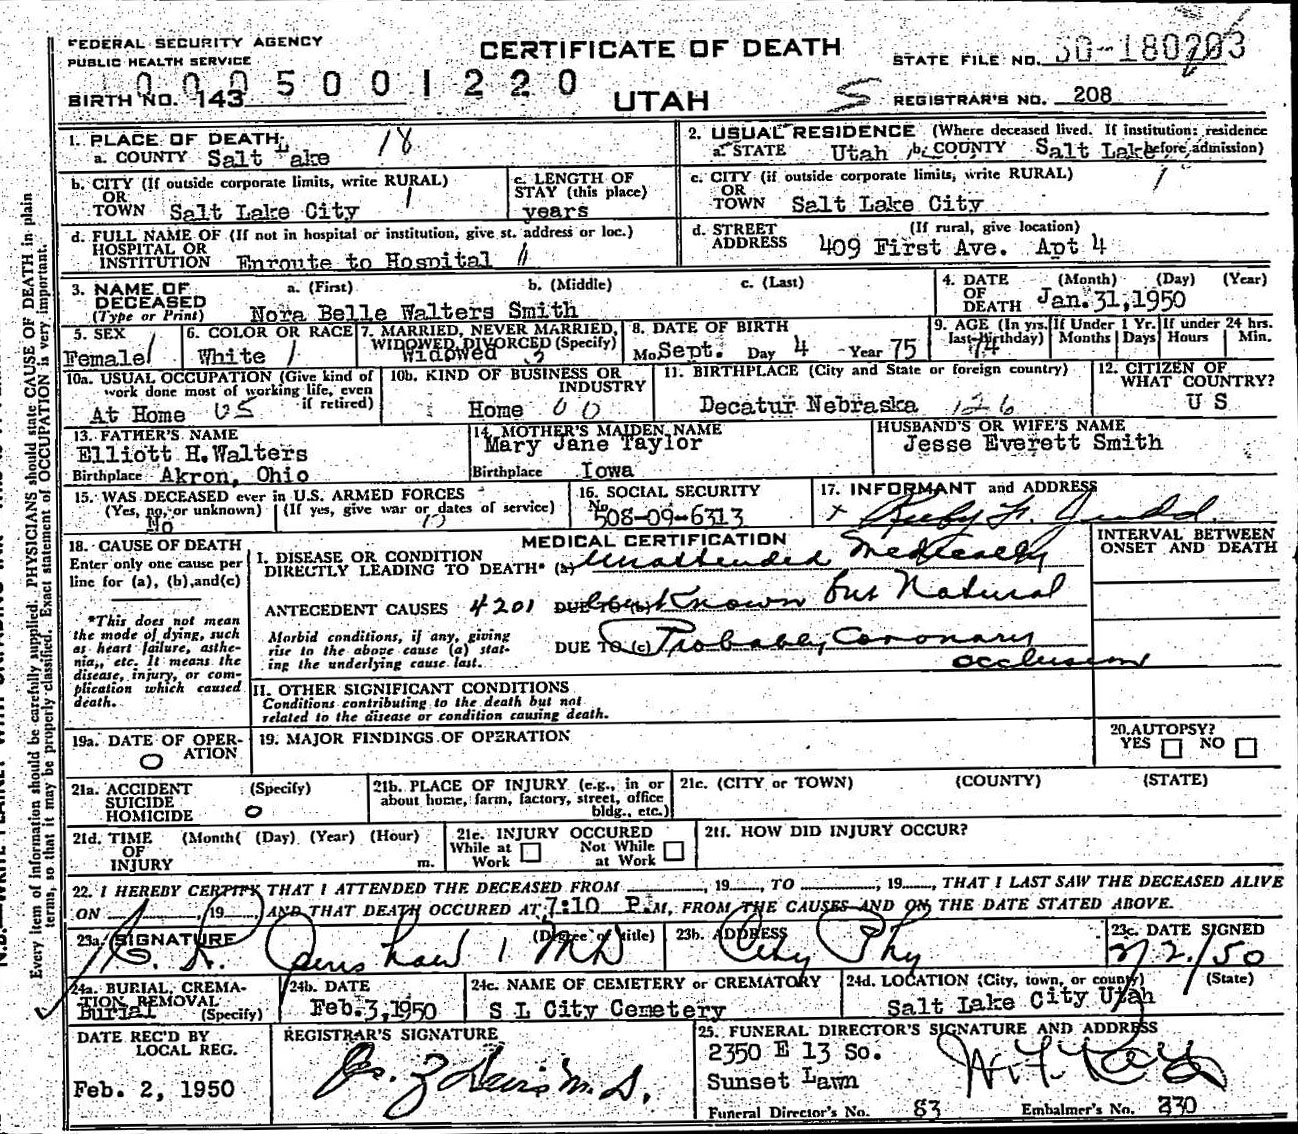 FEDERAL SECURITY AGENCY
PUBLIC HEALTH SERVICE
CERTIFICATE OF DEATH
STATE FILE NO. 50-180203
0005001220
BIRTH NO. 143
UTAH
S
REGISTRAR'S NO. 208
1. PLACE OF DEATH
a. COUNTY Salt Lake 18
2. USUAL RESIDENCE (Where deceased lived. If institution: residence before admission)
a. STATE Utah b. COUNTY Salt Lake
b. CITY (If outside corporate limits, write RURAL)
OR
TOWN Salt Lake City 1
c. LENGTH OF
STAY (this place)
years
c. CITY (if outside corporate limits, write RURAL) 1
OR
TOWN Salt Lake City
d. FULL NAME OF (If not in hospital or institution, give st. address or loc.)
HOSPITAL OR
INSTITUTION Enroute to Hospital
d. STREET (If rural, give location)
ADDRESS 409 First Ave. Apt 4
3. NAME OF a. (First) b. (Middle) c. (Last)
DECEASED
(Type or Print) Nora Belle Walters Smith
4. DATE (Month) (Day) (Year)
OF
DEATH Jan. 31, 1950
5. SEX
Female 1
6. COLOR OR RACE
White 1
7. MARRIED, NEVER MARRIED,
WIDOWED, DIVORCED (Specify)
Widowed 3
8. DATE OF BIRTH
Mo. Sept. Day 4 -Year 75
9. AGE (In yrs. last birthday) 74
If Under 1 Yr. Months Days
If under 24 hrs. Hours Min.
10a. USUAL OCCUPATION (Give kind of
work done most of working life, even
if retired)
At Home
10b. KIND OF BUSINESS OR
INDUSTRY
Home 0 0
11. BIRTHPLACE (City and State or foreign country)
Decatur Nebraska 126
12. CITIZEN OF
WHAT COUNTRY?
U S
13. FATHER'S NAME
Elliott H. Walters
Birthplace Akron, Ohio
14. MOTHER'S MAIDEN NAME
Mary Jane Taylor
Birthplace Iowa
HUSBAND'S OR WIFE'S NAME
Jesse Everett Smith
15. WAS DECEASED ever in U.S. ARMED FORCES
(Yes, no, or unknown) (If yes, give war or dates of service)
No
16. SOCIAL SECURITY
No. 508-09-6313
17. INFORMANT and ADDRESS
x Ruby F. Judd.
18. CAUSE OF DEATH
Enter only one cause per
line for (a), (b), and (c)
*This does not mean
the mode of dying, such
as heart failure, asthe-
nia, etc. It means the
disease, injury, or com-
plication which caused
death.
MEDICAL CERTIFICATION
INTERVAL BETWEEN
ONSET AND DEATH
I. DISEASE OR CONDITION
DIRECTLY LEADING TO DEATH* (a) Unattended Medically
ANTECEDENT CAUSES 4201 DUE TO (b) unknown but Natural
Morbid conditions, if any, giving
rise to the above cause (a) stat-
ing the underlying cause last.
DUE TO (c) Probably Coronary
occlusion
II. OTHER SIGNIFICANT CONDITIONS
Conditions contributing to the death but not
related to the disease or condition causing death.
19a. DATE OF OPER-
ATION
0
19. MAJOR FINDINGS OF OPERATION
20. AUTOPSY?
YES NO
21a. ACCIDENT (Specify)
SUICIDE
HOMICIDE 0
21b. PLACE OF INJURY (e.g., in or
about home, farm, factory, street, office
bldg., etc.)
21c. (CITY or TOWN) (COUNTY) (STATE)
21d. TIME (Month) (Day) (Year) (Hour)
OF
INJURY m.
21e. INJURY OCCURED
While at Work Not While at Work
21f. HOW DID INJURY OCCUR?
22. I HEREBY CERTIFY THAT I ATTENDED THE DECEASED FROM , 19 , TO , 19 , THAT I LAST SAW THE DECEASED ALIVE
ON , 19 AND THAT DEATH OCCURED AT 7:10 P.M, FROM THE CAUSES AND ON THE DATE STATED ABOVE.
23a. SIGNATURE (Degree or title)
MD
23b. ADDRESS
City Phy
23c. DATE SIGNED
2/2/50
24a. BURIAL, CREMA-
TION, REMOVAL
(Specify)
Burial
24b. DATE
Feb. 3, 1950
24c. NAME OF CEMETERY or CREMATORY
S L City Cemetery
24d. LOCATION (City, town, or county) (State)
Salt Lake City Utah
DATE REC'D BY
LOCAL REG.
Feb. 2, 1950
REGISTRAR'S SIGNATURE
M.D.
25. FUNERAL DIRECTOR'S SIGNATURE AND ADDRESS
2350 E 13 So.
Sunset Lawn
Funeral Director's No. 83 Embalmer's No. 330
Every item of information should be carefully supplied. PHYSICIANS should state CAUSE OF DEATH in plain
terms, so that it may be properly classified. Exact statement of OCCUPATION is very important.